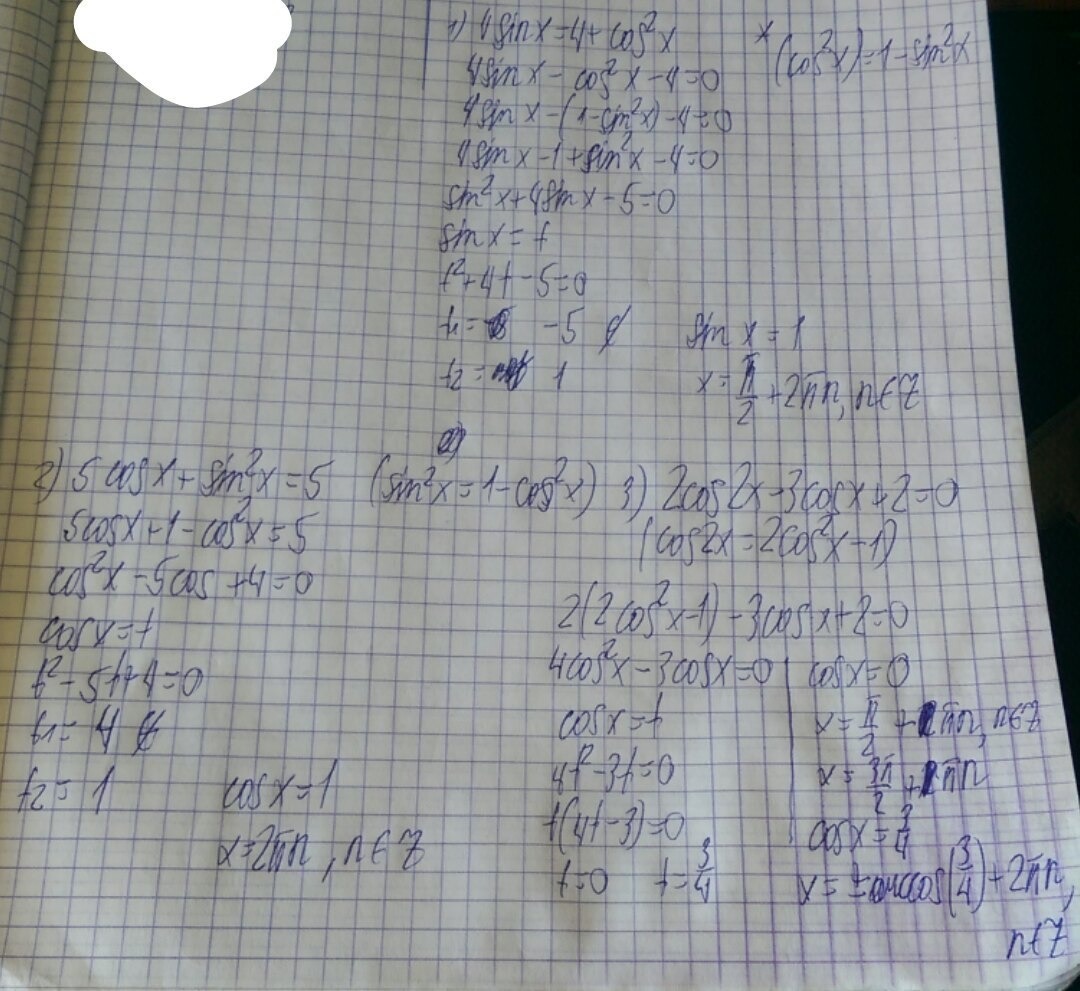 1) 4sinx=4+cos²x * (cos²x)=1-sin²x
4sinx-cos²x-4=0
4sinx-(1-sin²x)-4=0
4sinx-1+sin²x-4=0
sin²x+4sinx-5=0
sinx=t
t²+4t-5=0
t₁= -5 ∉
t₂= 1
sin x=1
x=π/2+2πn, n∈Z
2) 5cosx+sin²x=5 (sin²x=1-cos²x)
5cosx+1-cos²x=5
cos²x-5cos+4=0
cosx=t
t²-5t+4=0
t₁=4 ∉
t₂=1
cosx=1
x=2πn, n∈Z
3) 2cos2x-3cosx+2=0
(cos2x=2cos²x-1)
2(2cos²x-1)-3cosx+2=0
4cos²x-3cosx=0
cosx=t
4t²-3t=0
t(4t-3)=0
t=0 t=3/4
cosx=0
x=π/2+πn, n∈Z
x=3π/2+πn
cosx=3/4
x=±arccos(3/4)+2πn,
n∈Z